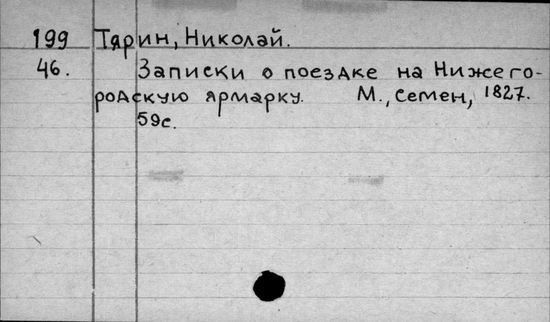 199 Тярин, Николай.
46. Записки о поездке на Нижего-
родскую ярмарку. М., Семен, 1827.
59с.